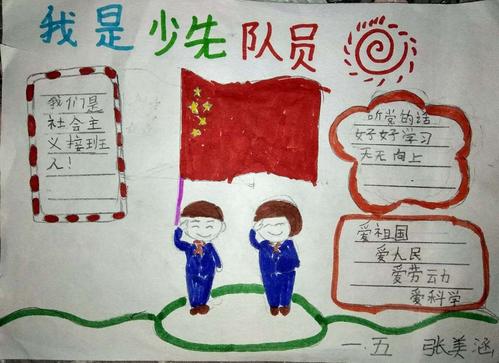 我是少先队员
我们是
社会主
义接班
人！
听党的话
好好学习
天天向上
爱祖国
爱人民
爱劳动
爱科学
一.五 张美涵